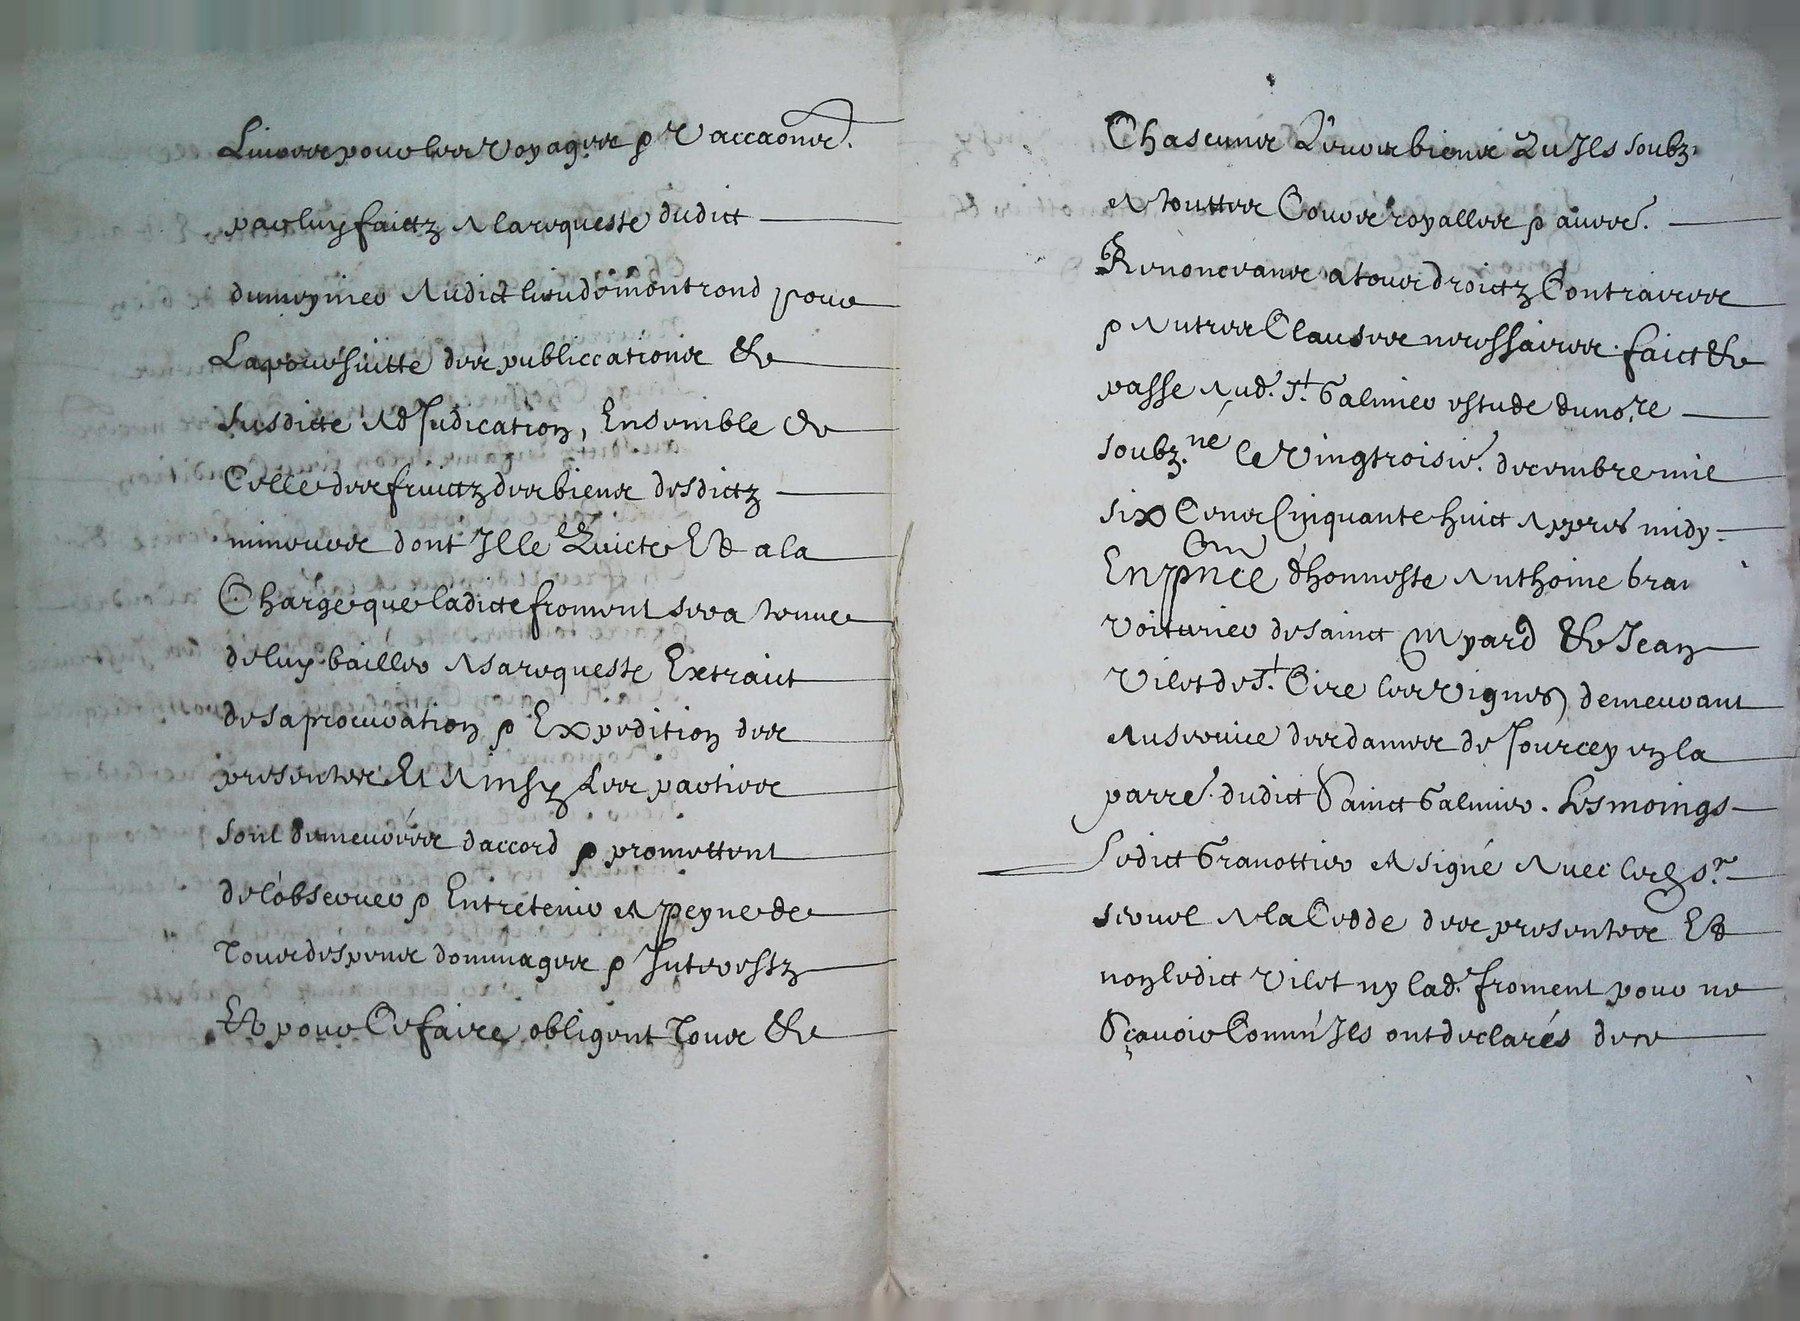 Livres pour les voyages & vaccaons.
par luy faictz a la requeste dudict
dumeynier audict lieu de montrond pour
La poursuitte des publiccations &
susdicte adJudication, Ensemble de
Celle des fruictz des biens desdictz
mineurs dont Il le Quicte Et a la
Charge que ladicte froment sera tenue
de luy bailler a sa requeste Extraict
de sa procuration & Expedition des
presentes Et Ainsy Les parties
sont demeurées daccord & promettent
de lobserver & Entretenir a peyne de
Tous despens dommages & Interestz
Et pour Ce faire obligent Tous &
Chascuns Leurs biens Qu Ils soubz.
a touttes Cours royalles & aures.
Renonceans a tous droictz Contraires
& autres Clauses necessaires. faict &
passe aud. St. Galmier estude du nore
soubz.né le vingtroisie. decembre mil
six Cens Cinquante huict appres midy
En pnce dhonneste Anthoine brai
voiturier de sainct myard & Jean
vilet de St. Cire les vignes demeurant
au service des dames de Jourcey en la
parre. dudict Sainct Galmier. Les moings
Ledict Granottier a signé avec led sr.
servel a la Cedde des presentes Et
non ledict vilet ny lad. froment pour ne
Sçavoir Comm' Ils ont declarés de ce